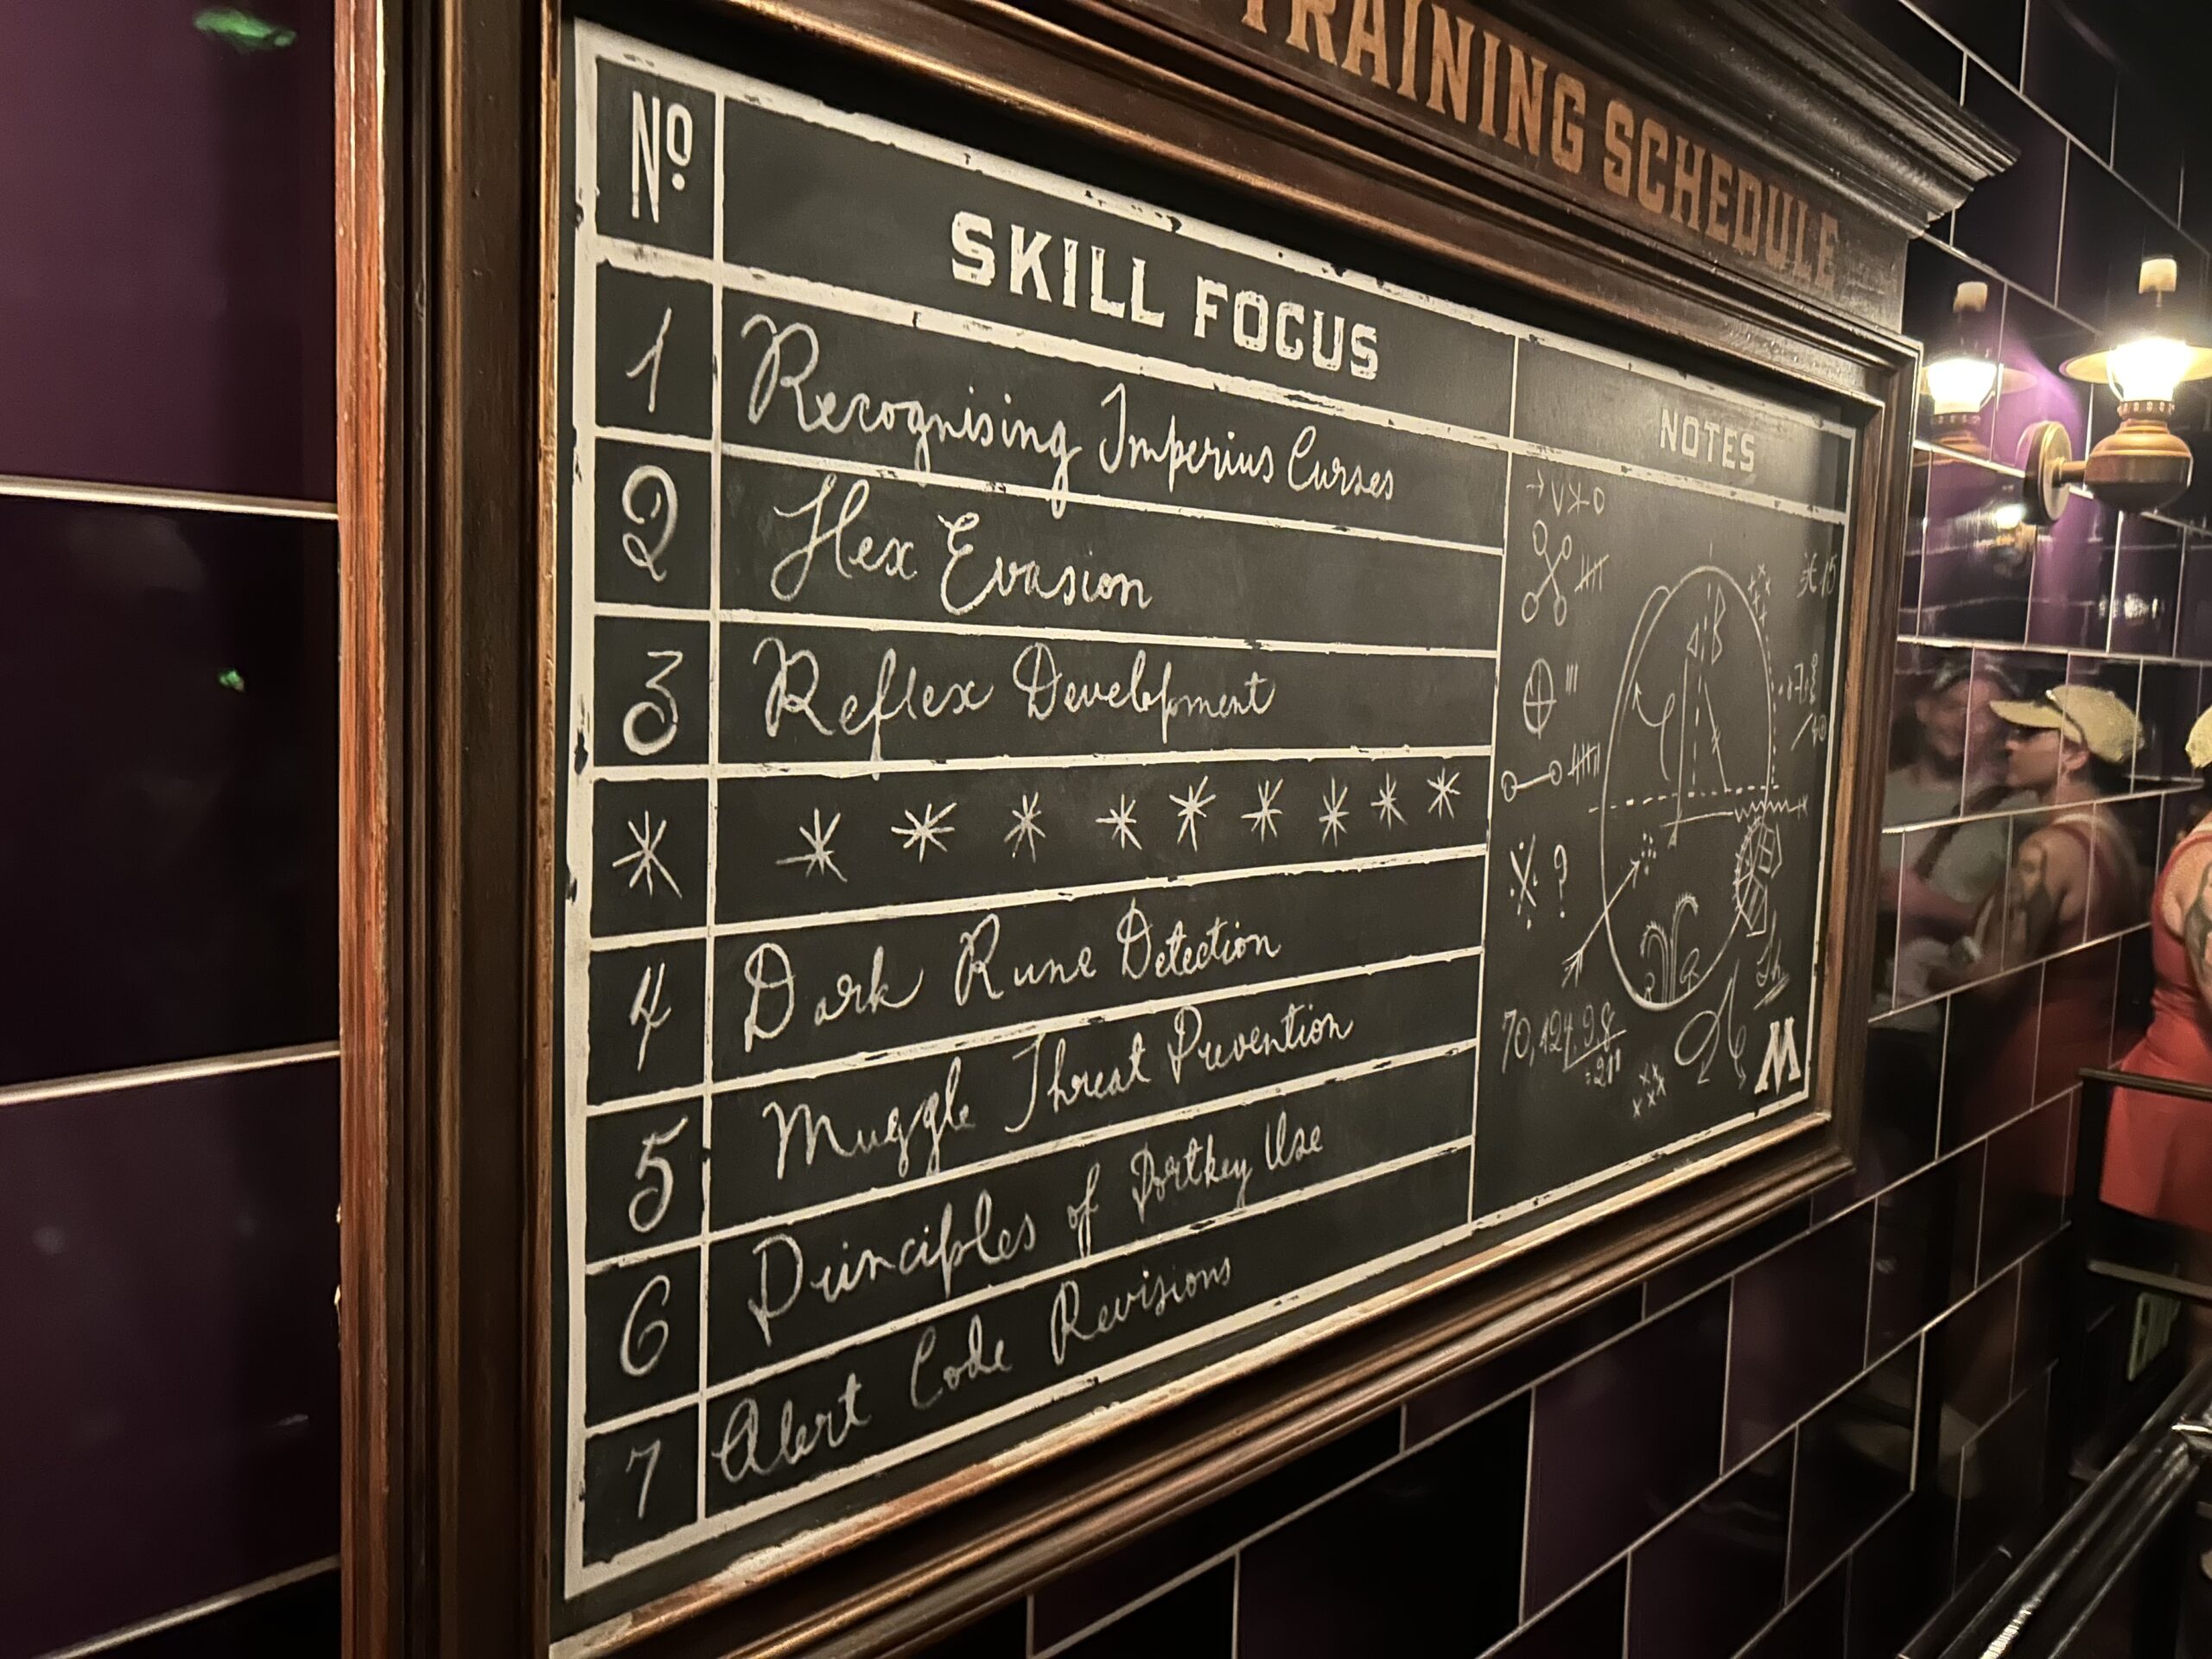 TRAINING SCHEDULE
Nº SKILL FOCUS NOTES
1 Recognising Imperius Curses
2 Hex Evasion
3 Reflex Development
* * * * * * * * * *
4 Dark Rune Detection
5 Muggle Threat Prevention
6 Principles of Portkey Use
7 Alert Code Revisions
?
M